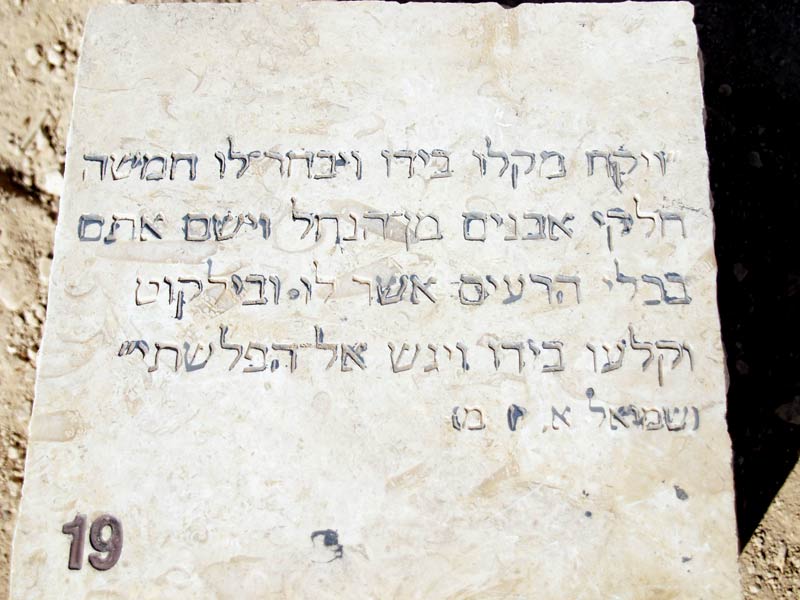 "ויקח מקלו בידו ויבחר לו חמשה
חלקי אבנים מן הנחל וישם אתם
בכלי הרעים אשר לו ובילקוט
וקלעו בידו ויגש אל הפלשתי"
(שמואל א, יז מ)
19